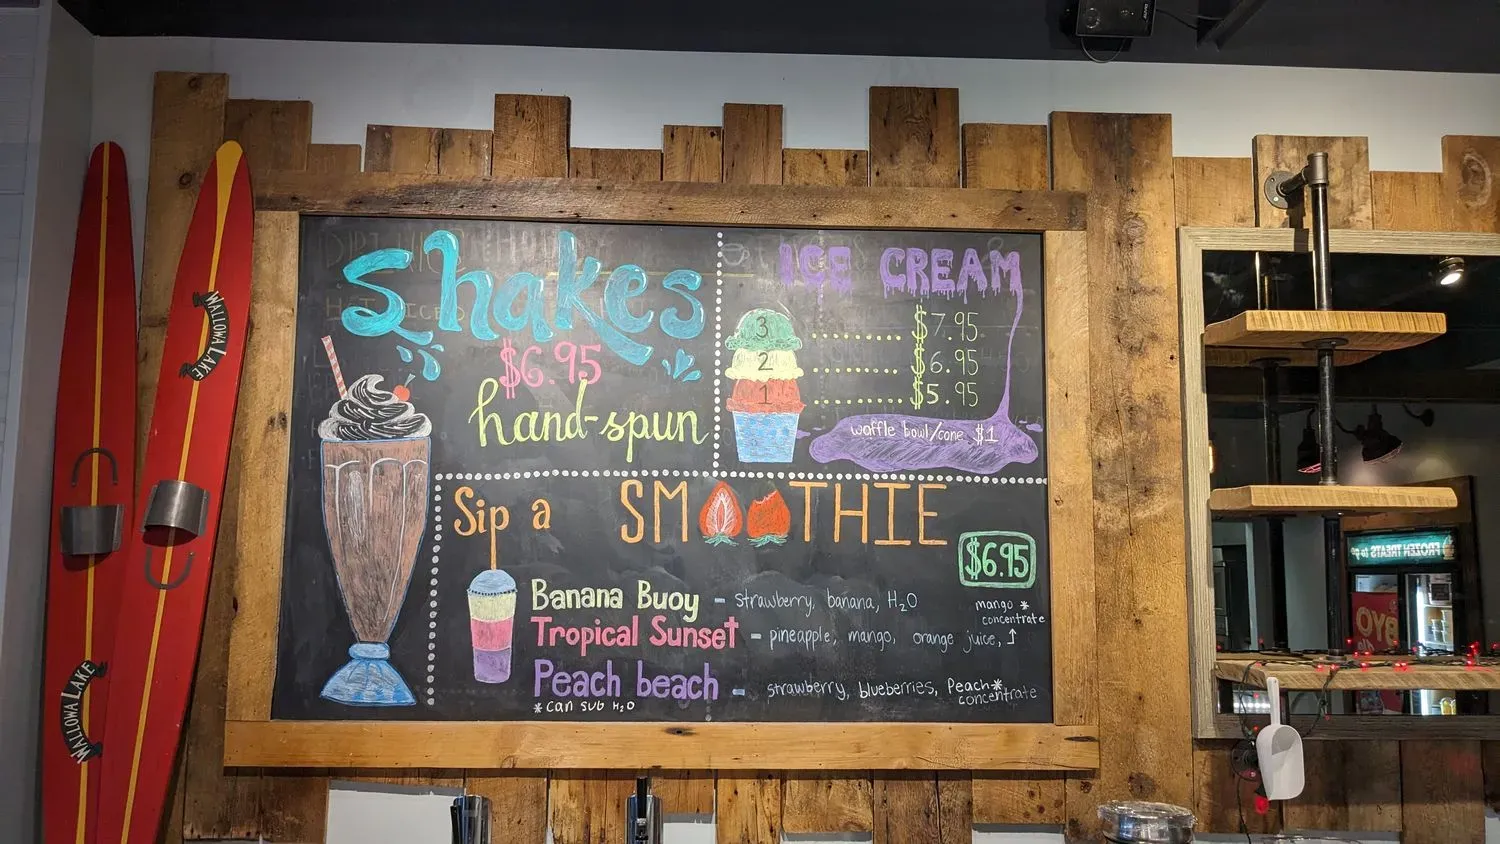 Shakes
$6.95
hand-spun
ICE CREAM
3 ........ $7.95
2 ........ $6.95
1 ........ $5.95
waffle bowl/cone $1
Sip a SMOOTHIE
$6.95
Banana Buoy - strawberry, banana, H2O
mango *
concentrate
Tropical Sunset - pineapple, mango, orange juice, ↑
Peach beach - strawberry, blueberries, Peach*
concentrate
*can sub H2O
WALLOWA LAKE
WALLOWA LAKE
FROZEN TREATS to go